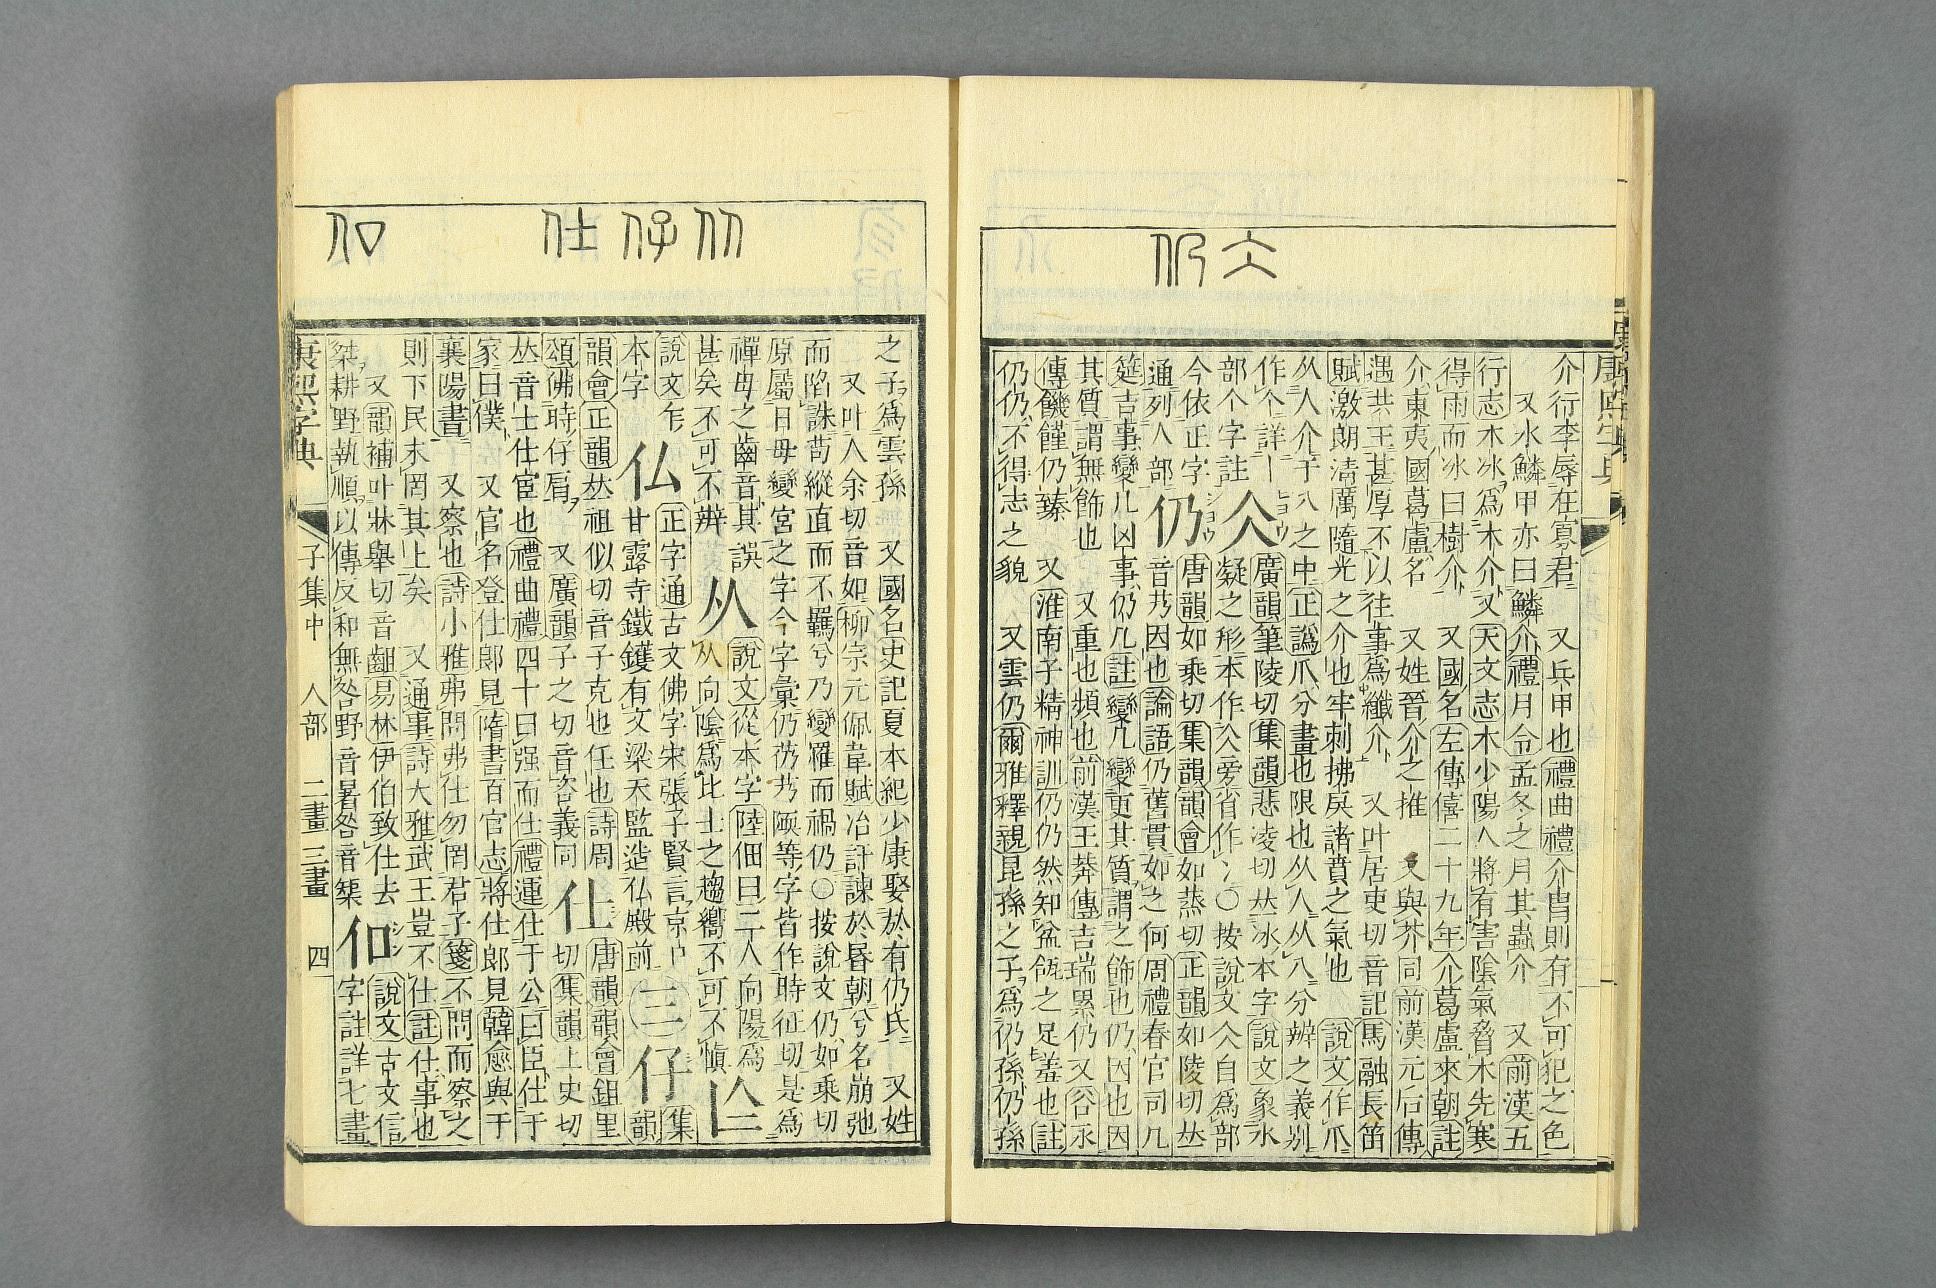 康熙字典
介行李辱在寡君 又兵甲也禮曲禮介冑則有不可犯之色
又水鱗甲亦曰鱗介禮月令孟冬之月其蟲介 又前漢五
行志木冰為木介又天文志木少陽人將有害陰氣脅木先寒
得雨而冰曰樹介 又國名左傳僖二十九年介葛盧來朝註
介東夷國葛盧名 又姓晉介之推 又與芥同前漢元后傳
遇共王甚厚不以往事為纖介 又叶居吏切音記馬融長笛
賦激朗清厲隨光之介也牢刺拂戾諸賁之氣也 說文作爪
从人介于八之中正譌爪分畫也限也从人从八分辨之義別
作个詳丨
部个字註
仌 ヒョウ
廣韻筆陵切集韻悲凌切𠀤冰本字說文象水
凝之形本作仌爰省作冫○按說文仌自為部
今依正字
通列人部
仍 ショウ
唐韻如乘切集韻韻會如蒸切正韻如陵切𠀤
音艿因也論語仍舊貫如之何周禮春官司几
筵吉事變几凶事仍几註變几變更其質謂之飾也仍因也因
其質謂無飾也 又重也頻也前漢王莽傳吉瑞累仍又谷永
傳饑饉仍臻 又淮南子精神訓仍仍然知盆瓴之足羞也註
仍仍不得志之貌 又雲仍爾雅釋親昆孫之子為仍孫仍孫
之子為雲孫 又國名史記夏本紀少康娶於有仍氏 又姓
又叶人余切音如柳宗元佩韋賦冶訐諫於昏朝兮名崩弛
而陷誅苟縱直而不羈兮乃變罹而禍仍○按說文仍如乘切
原屬日母變宮之字今字彙仍艿艿陾等字皆作時征切是為
禪母之齒音其誤
甚矣不可不辨
从
說文從本字陸佃曰二人向陽為
从向陰為比士之趨嚮不可不愼
仚
說文仡
本字
仏
正字通古文佛字宋張子賢言京口
甘露寺鐵鑊有文梁天監造仏殿前
三
仔
集
韻
韻會正韻𠀤祖似切音子克也任也詩周
頌佛時仔肩 又廣韻子之切音咨義同
仕
唐韻韻會鉏里
切集韻上史切
𠀤音士仕宦也禮曲禮四十曰强而仕禮運仕于公曰臣仕于
家曰僕 又官名登仕郎見隋書百官志將仕郎見韓愈與于
襄陽書 又察也詩小雅弗問弗仕勿罔君子箋不問而察之
則下民末罔其上矣 又通事詩大雅武王豈不仕註仕事也
又韻補叶牀舉切音齟易林伊伯致仕去
桀耕野執順以傳反和無咎野音暑咎音榘
㐰 シン
說文古文信
字註詳七畫
康熙字典 子集中 人部 二畫三畫 四